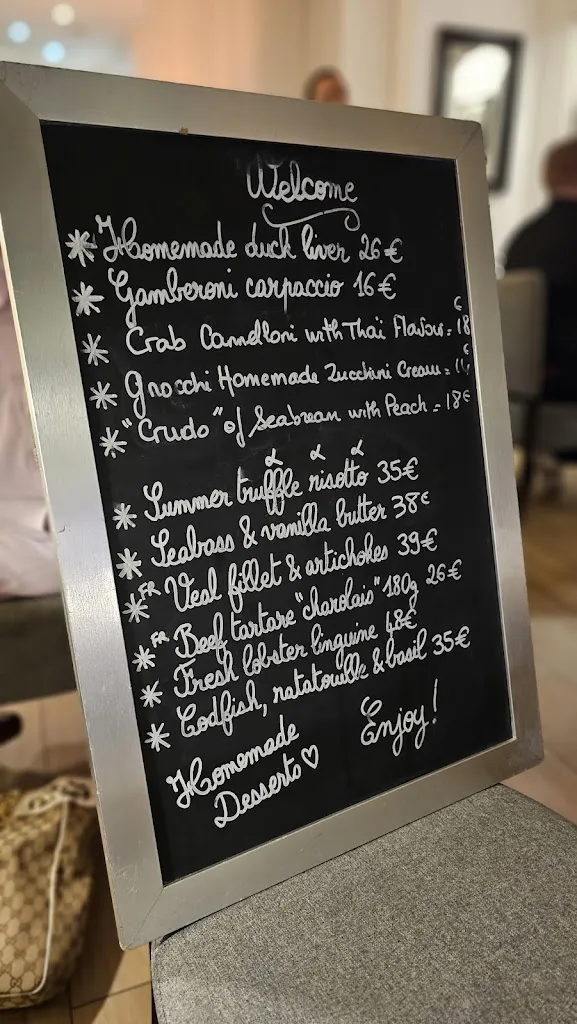 Welcome
* Homemade duck liver 26€
* Gamberoni carpaccio 16€
* Crab Cannelloni with Thaï Flavour = 18€
* Gnocchi Homemade Zucchini Cream =
* "Crudo" of Seabream with Peach = 18€
* Summer truffle risotto 35€
* Seabass & vanilla butter 38€
* FR Veal fillet & artichokes 39€
* FR Beef tartare "charolais" 180g 26€
* Fresh lobster linguine 48€
* Codfish, ratatouille & basil 35€
Homemade
Desserts ♡
Enjoy!